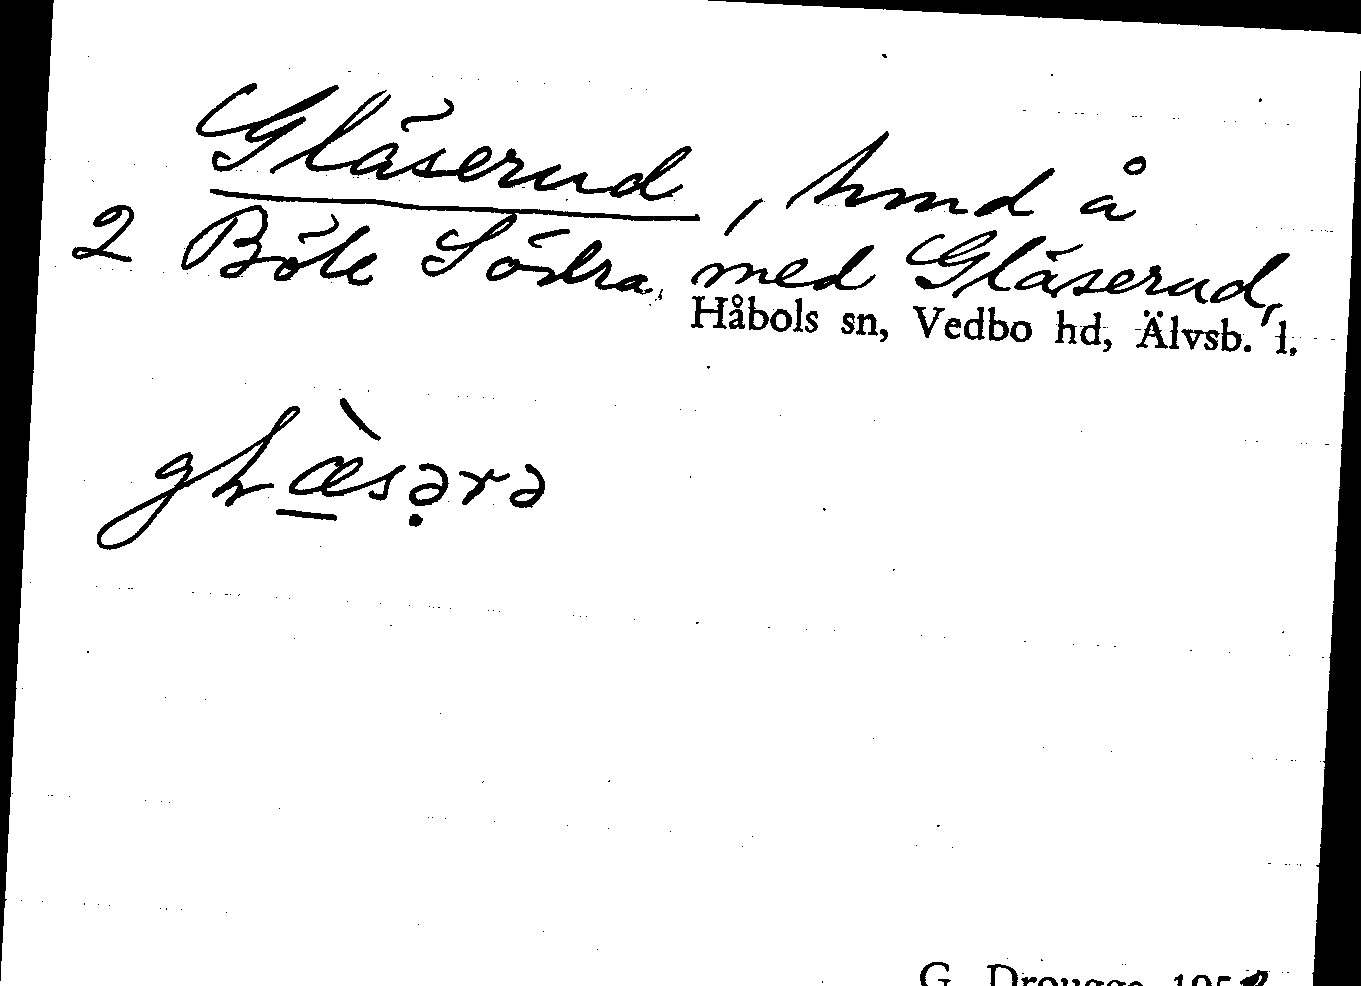 Gläserud, hmd å
2 Böle Södra, med Gläserud,
Håbols sn, Vedbo hd, Älvsb. l.
G. Drougge 195